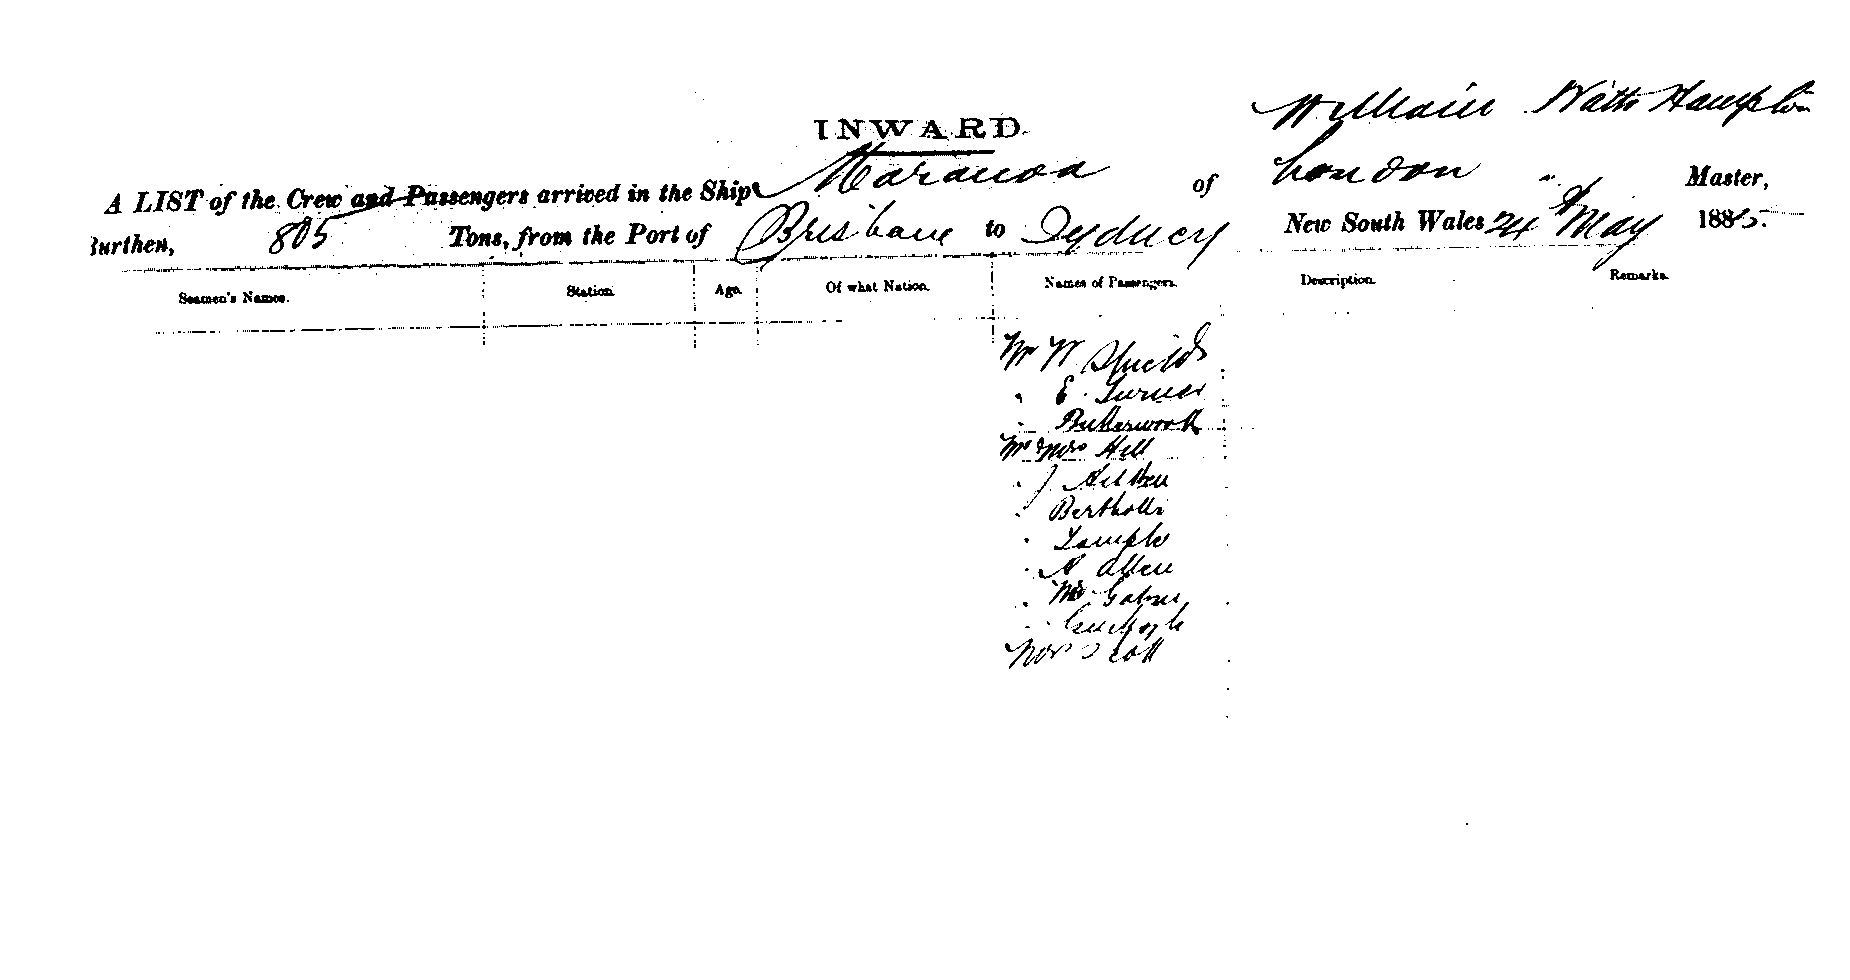 William Watts Hampton
INWARD
A LIST of the Crew and Passengers arrived in the Ship Maranoa of London Master,
Burthen, 805 Tons, from the Port of Brisbane to Sydney New South Wales 24th May 1885.
Seamen's Names. Station. Age. Of what Nation. Names of Passengers. Description. Remarks.
Mr W Shields
" E. Turner
" Butterworth
Mr & Mrs Hill
" J Aitken
" Bertholli
" Temple
" A Allen
" Mc
Mrs Scott